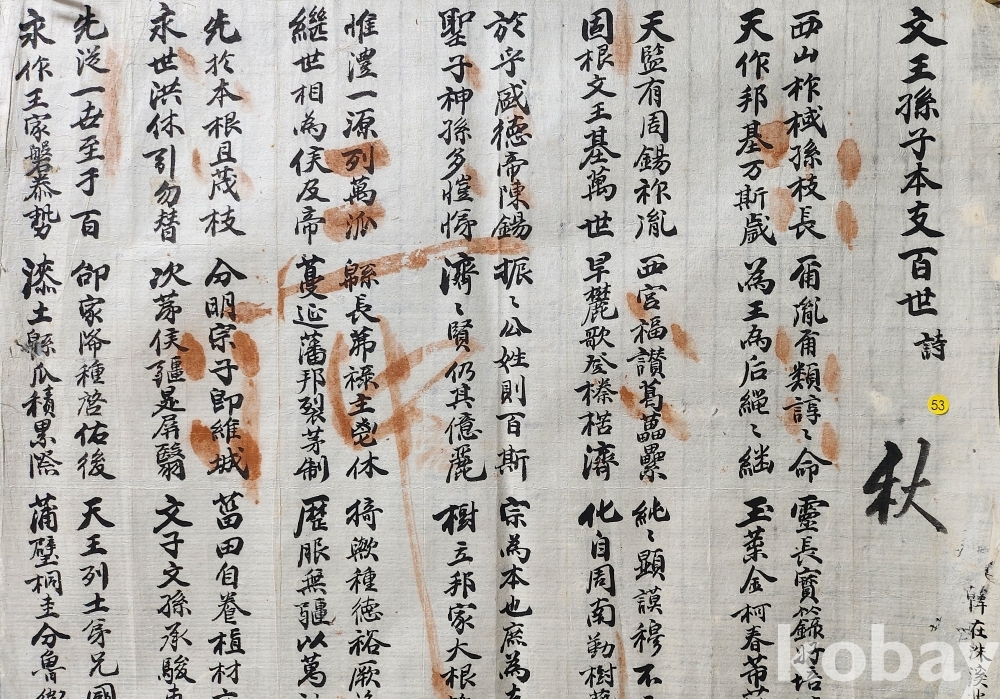 文王孫子本支百世 詩
53
秋
西山柞棫孫枝長 爾胤爾類諄〻命 靈長寶籙
天作邦基万斯歲 為王為后繩〻継 玉葉金柯春
天監有周錫祚胤 西宮福讃葛藟纍 純〻顯謨穆不
固根文王基萬世 早麓歌登榛楛濟 化自周南勤樹
於乎盛德帝陳錫 振〻公姓則百斯 宗為本也庶為
聖子神孫多愷悌 濟〻賢仍其億麗 樹立邦家大根
惟澧一源列萬派 緜長茀祿主鬯休 猗歟種德裕厥
継世相為侯及帝 蔓延藩邦裂茅制 歷服無疆以萬
先於本根且茂枝 分明宗子即維城 菑田自養植材
永世洪休引勿替 次第侯疆是屏翳 文子文孫承駿
先從一世至于百 邰家降種啓佑後 天王列土兄
永作王家磐泰勢 漆土緜瓜積累際 蒲璧桐圭分魯
kobay